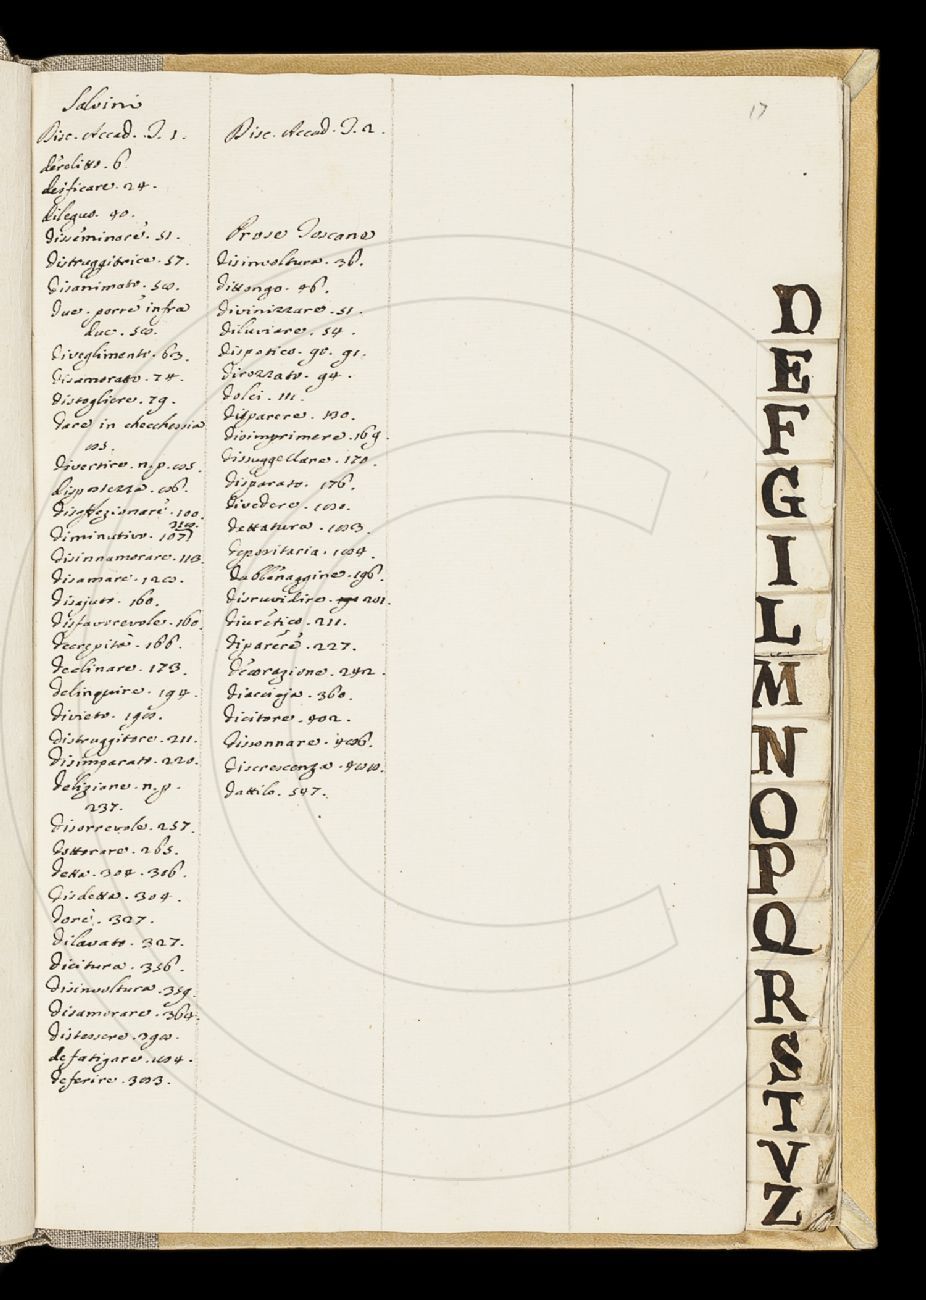 17
Salvini
Disc. Accad. T. 1.
derelitto. 6
deificare. 24.
dileguo. 40.
disseminare. 51.
distruggitrice. 57.
disanimato. 58.
due. porre infra
due. 58.
diveglimento. 63.
disamorato. 74.
distogliere. 79.
dare in checchessia
85.
divertire. n.p. 85.
disposizza. 86.
disaffezionare. 100.
diminutivo. 107.
disinnamorare. 113.
disamare. 128.
disajuto. 160.
disfavorevole. 160.
decrepità. 166.
declinare. 173.
delinquire. 194.
divieto. 198.
distruggitore. 211.
disimparato. 220.
delizione. n.p.
237.
disorrevole. 257.
dottorare. 265.
detta. 304. 306.
disdetta. 304.
dorè. 327.
dilavato. 327.
dicitura. 356.
disinvoltura. 359.
disamorare. 364.
distessere. 398.
defatigare. 184.
deferire. 383.
Disc. Accad. T. 2.
Prose Toscane
disinvoltura. 36.
dittongo. 46.
divinizzare. 51.
diluviare. 54.
dispotico. 90. 91.
dirozzato. 94.
dolci. 111.
disparere. 130.
disimprimere. 169.
dissuggellare. 170.
disparato. 176.
divedere. 180.
dettatura. 183.
depositaria. 184.
dabbenaggine. 196.
disruvidire. 201.
diuretico. 211.
diparere. 227.
decorazione. 242.
diacciaja. 360.
dicitore. 402.
dissonnare. 486.
discrescenza. 488.
dattilo. 547.
D
E
F
G
I
L
M
N
O
P
Q
R
S
T
V
Z